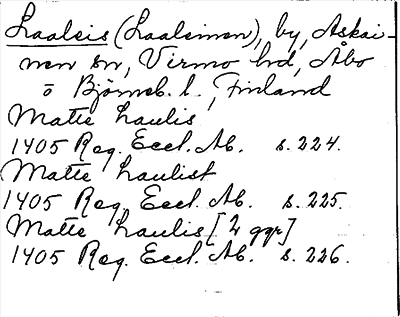 Laaleis (Laaleinen), by, Askai-
nen sn, Virmo hd, Åbo
o Björneb. l., Finland
Matte Laulis
1405 Reg. Eccl. Ab. s. 224.
Matte Laulist
1405 Reg. Eccl. Ab. s. 225.
Matte Laulis [2 ggr]
1405 Reg. Eccl. Ab. s. 226.